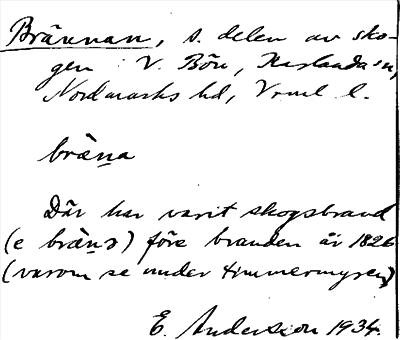 Brännan, s. delen av sko-
gen i V. Bön, Karlanda sn,
Nordmarks hd, Vrml l.
bräṉa
Där har varit skogsbrand
(e bräṉə) före branden år 1826
(varom se under Timmermyren)
E. Andersson 1934.